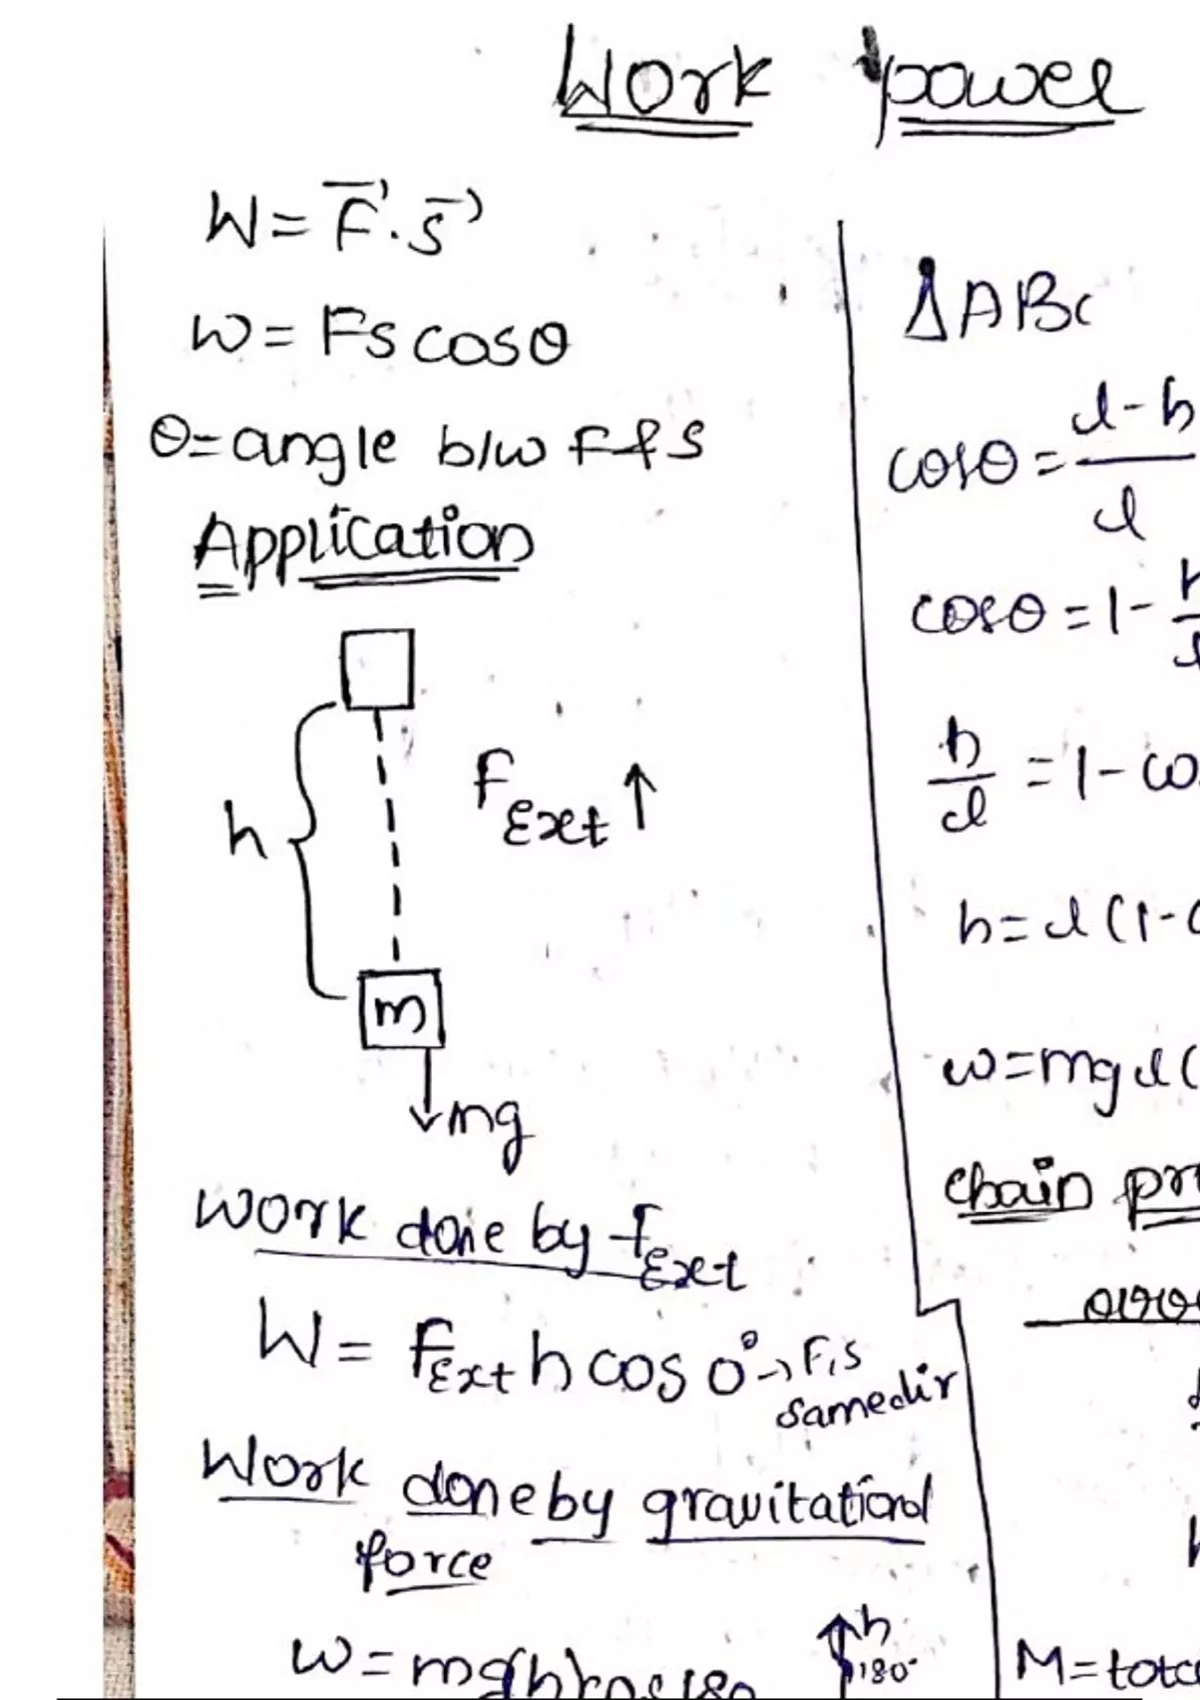 Work power
W = F⃗ . s⃗
W = Fs cosθ
θ = angle b/w F & S
Application
h
F Ext ↑
m
mg
Work done by F Ext
W = F Ext h cos 0° → F, S
same dir
Work done by gravitational
force
W = mg(h) cos 180
h
180°
ΔABC
cosθ = l - h
l
cosθ = 1 -
h/l = 1 -
h = l (1 -
W = mg l (
chain
M =